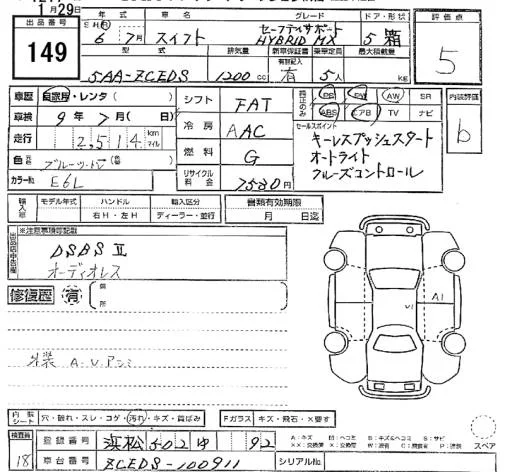 月29日
出品番号
149
年式
車名
グレード
ドア・形状
評価点
6年7月
スイフト
セーフティサポート
HYBRID MX
5 箱
5
型式
排気量
新車保証書
乗車定員
最大積載量
5AA-ZCEDS
1200cc
有
5人
kg
車歴
自家用・レンタ( )
シフト
FAT
純正のみ
PS PW AW SR
内装評価
車検
9年7月( 日)
ABS エアB TV ナビ
b
走行
2,514
km
マイル
冷房
AAC
セールスポイント
キーレスプッシュスタート
色
(替 )
燃料
G
オートライト
クルーズコントロール
カラーNo
E6L
リサイクル料金
7580円
輸入車
モデル年式
ハンドル
輸入区分
書類有効期限
右H・左H
ディーラー・並行
月 日迄
出品店申告欄
※注意事項等記載
DSBSⅡ
オーディオレス
修復歴
有
箇所
V1
A1
外装 A.V.アシミ
内装シート
穴・破れ・スレ・コゲ・汚れ・キズ・肩ばみ
Fガラス
キズ・飛石・×要す
検査員
18
登録番号
浜松502ゆ 92
A:キズ
スペア
車台番号
ZCEDS-100911
シリアルNo.